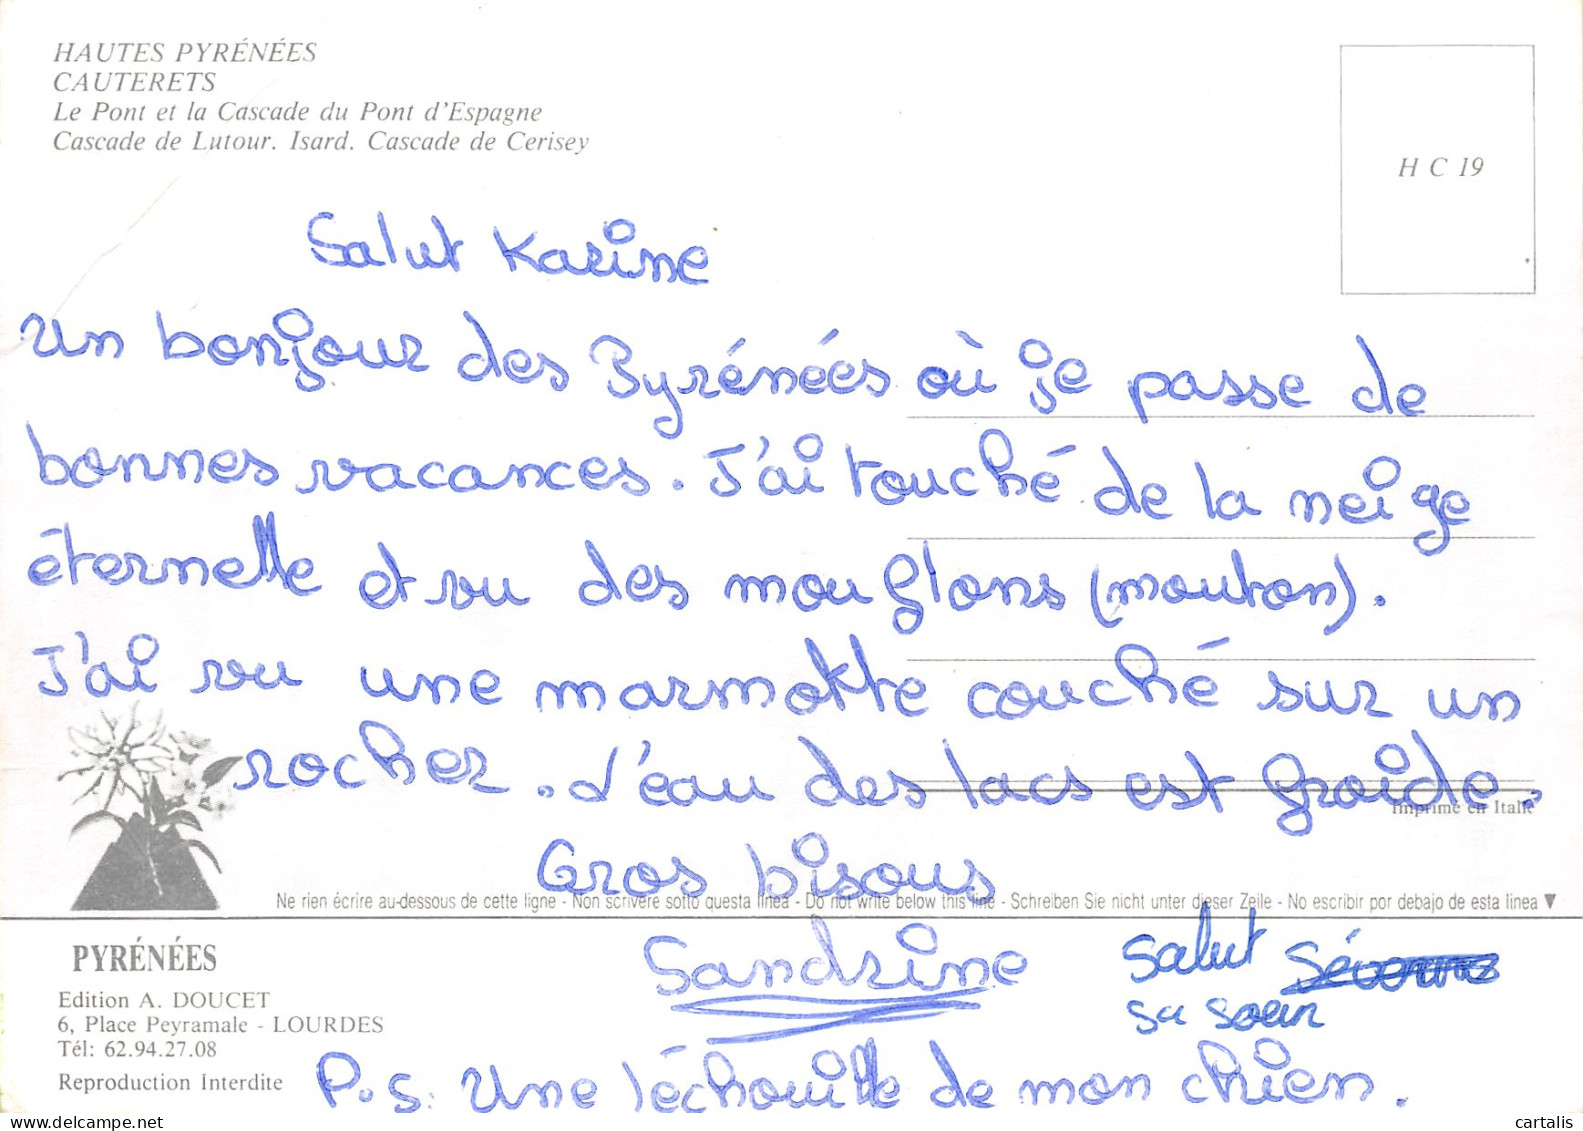 HAUTES PYRÉNÉES
CAUTERETS
Le Pont et la Cascade du Pont d'Espagne
Cascade de Lutour. Isard. Cascade de Cerisey
H C 19
Salut Karine
Un bonjour des Pyrénées où je passe de
bonnes vacances. J'ai touché de la neige
éternelle et vu des mouflons (mouton).
J'ai vu une marmotte couché sur un
rocher. L'eau des lacs est froide.
Imprimé en Italie
Gros bisous
Ne rien écrire au-dessous de cette ligne - Non scrivere sotto questa linea - Do not write below this line - Schreiben Sie nicht unter dieser Zeile - No escribir por debajo de esta linea ▼
Sandrine
Salut
sa soeur
PYRÉNÉES
Edition A. DOUCET
6, Place Peyramale - LOURDES
Tél: 62.94.27.08
Reproduction Interdite
P.S: Une léchouille de mon chien.
cartalis